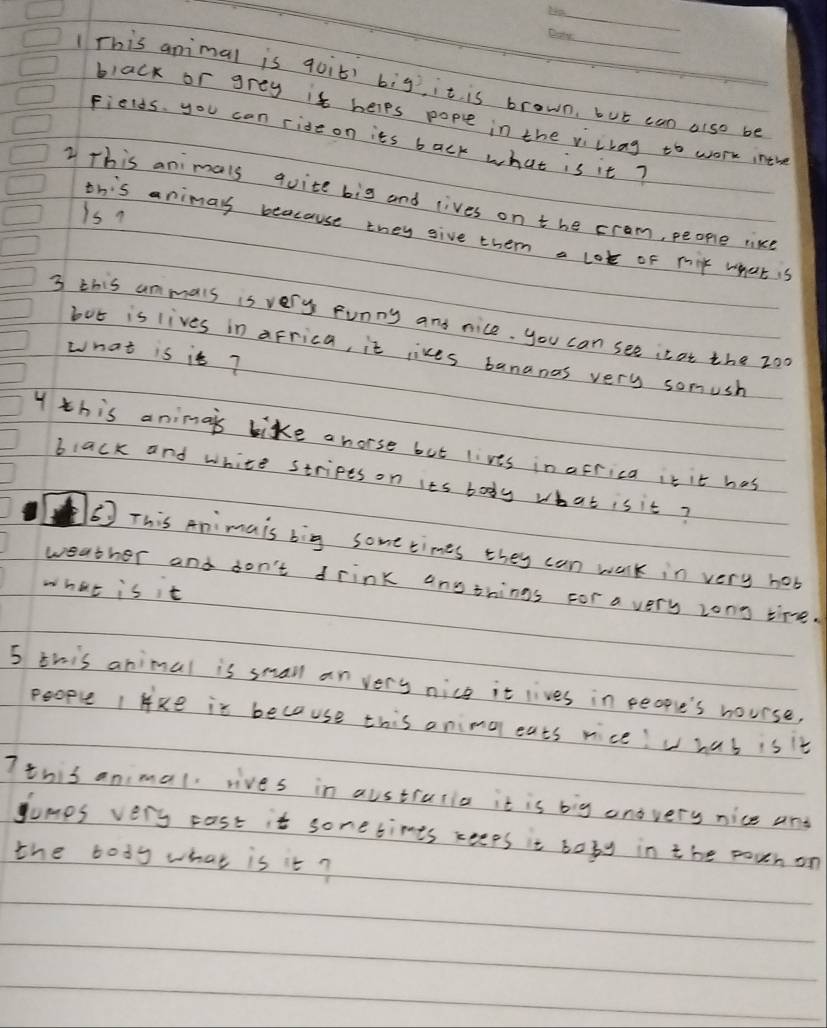 No.
Date:
1 This animal is quiti big, it is brown, but can also be
black or grey it helps pople in the villag to work in the
Fields. you can ride on its back what is it ?
2 This animals quite big and lives on the fram, people like
this animals beacause they give them a lot of milk what is
is ?
3 this anmals is very funny and nice. you can see it at the zoo
but is lives in africa, it likes bananas very somush
what is it ?
4 this animals like ahorse but lives in africa it it has
black and white stripes on its body what is it ?
6) This Animals big some times they can walk in very hot
weather and don't drink any things For a very long time.
what is it
5 this animal is small an very nice it lives in people's hourse,
people like it because this animal eats mice! what is it
7 this animal. lives in australia it is big and very nice and
jumps very fast it sometimes keeps it baby in the pouch on
the body what is it ?